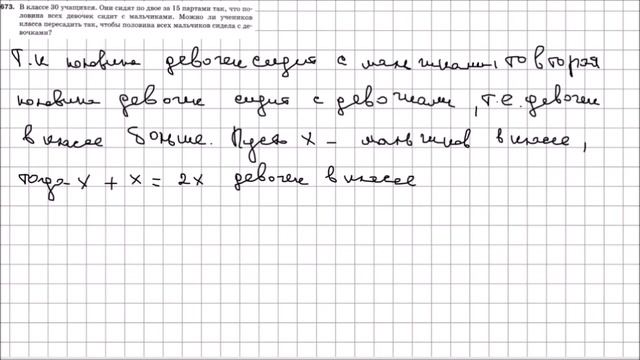 673. В классе 30 учащихся. Они сидят по двое за 15 партами так, что по-
ловина всех девочек сидит с мальчиками. Можно ли учеников
класса пересадить так, чтобы половина всех мальчиков сидела с де-
вочками?
Т.к половина девочек сидит с мальчиками, то вторая
половина девочек сидит с девочками, т.е. девочек
в классе больше. Пусть x - мальчиков в классе,
тогда x + x = 2x девочек в классе